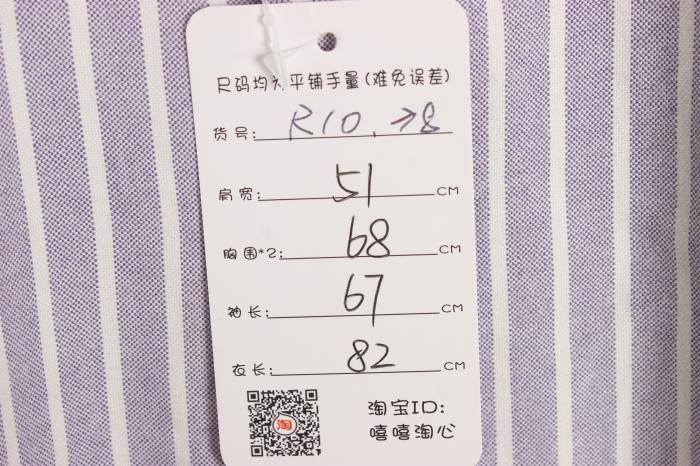 尺码均为平铺手量(难免误差)
货号: R10.→8
肩宽: 51 CM
胸围*2: 68 CM
袖长: 67 CM
衣长: 82 CM
淘
淘宝ID:
嘻嘻淘心